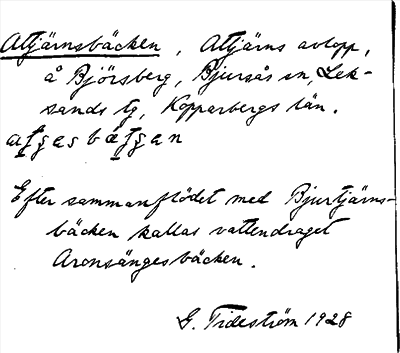 Atjärnsbäcken, Atjärns avlopp,
å Björsberg, Bjursås sn, Lek-
sands tg, Kopparbergs län.
Efter sammanflödet med Bjurtjärns-
bäcken kallas vattendraget
Aronsängesbäcken.
G. Tideström 1928